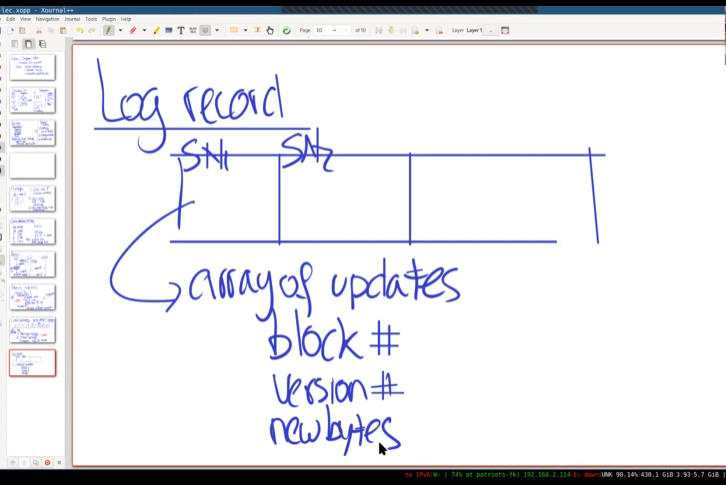 -lec.xopp - Xournal++
Edit View Navigation Journal Tools Plugin Help
Page 10 of 10 Layer Layer 1
Log record
SN1 SN2
array of updates
block #
version #
new bytes
no IPv6 W: ( 74% at patriots-fk) 192.168.2.114 E: down UNK 90.14% 430.1 GiB 3.93 5.7 GiB